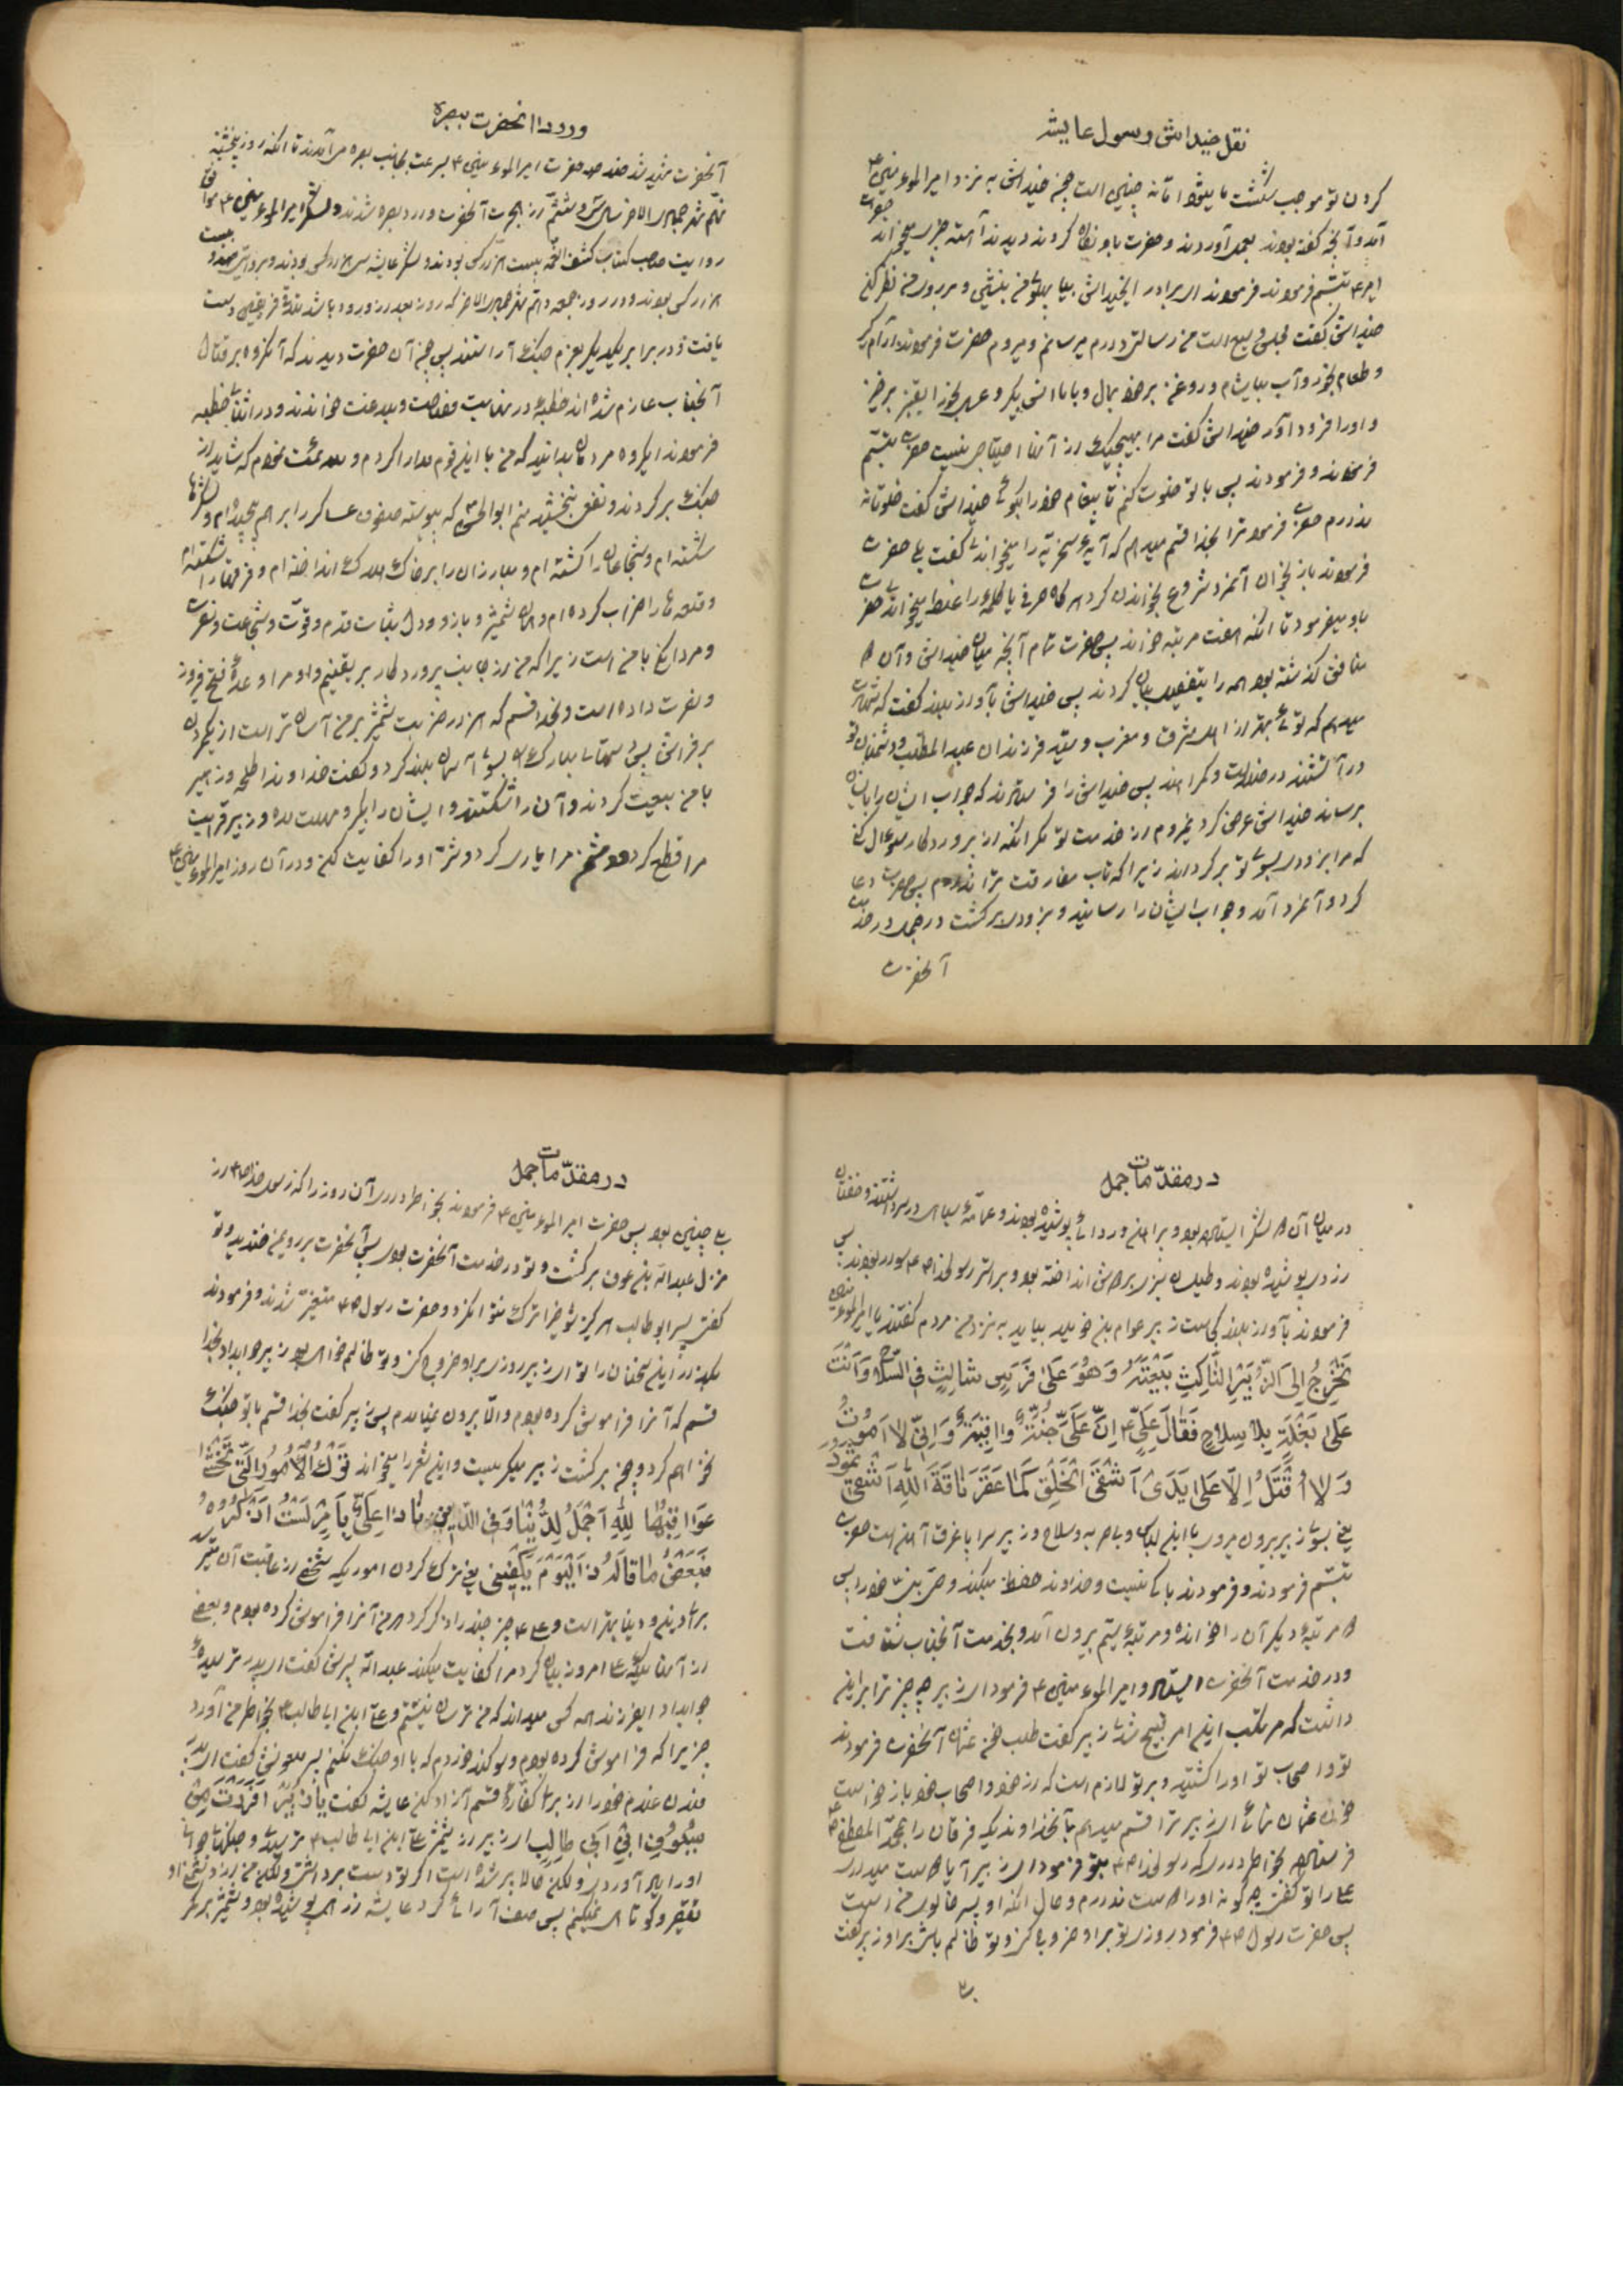 نقل خیداش رسول عایشه
کردن تو موجب شکست ما میشود اتا نه چنین است چون خیداش به نزد امیرالموءمنین ع
آمد و آنچه گفته بودند بعمل آورد و حضرت باو نگاه کردند دیدند آهسته چیزی میخواند
تبسّم فرمودند فرمودند ای برادر ای خیداش بیا پهلوی من بنشین و در روی من نظر کن
خیداش گفت مجلس وسیع است من رسالتی دارم میرسانم و میروم حضرت فرمودند آرام گیر
و طعام بخور و آب بیاشام و روغن بر خود بمال
و اورا فرود آور خیداش گفت مرا بهیچیک از آنها احتیاجی نیست حضرت تبسّم
فرمودند و فرمودند پس با تو خلوت کنم تا پیغام خود را بگوئی خیداش گفت خلوتی
ندارم حضرت فرمود ترا بخدا قسم میدهم که آیهٔ سخره را میخواندی گفت بلی حضرت
فرمودند باز بخوان آنمرد شروع بخواندن کرد هر گاه حرفی یا کلمهٔ را غلط میخواند حضرت
باو میفرمود تا آنکه هفت مرتبه خواند پس حضرت تمام آنچه میان خیداش و آن ۲
منافق گذشته بود همه را بتفصیل بیان کردند پس خیداش بآواز بلند گفت که شهادت
میدهم که تو بهتر از اهل مشرق و مغرب و سیّد فرزندان عبدالمطلب و دشمنان تو
در آتشند در ضلالت و گمراهند پس خیداش را فرستادند که جواب ایشان را بایشان
برساند خیداش عرض کرد نمیروم از خدمت تو مگر آنکه از پروردگار سوءال کنی
که مرا بزودی بسوی تو برگرداند زیرا که تاب مفارقت ترا ندارم پس حضرت دعا
کرد و آنمرد آمد و جواب ایشان را رسانید و بزودی برگشت در جمل در خدمت
آنحضرت
ورود آنحضرت ببصره
آنحضرت شهید شد حضرت امیرالموءمنین ع بسرعت بجانب بصره می‌آمدند تا آنکه روز پنجشنبه
نهم شهر جمادی الاخر سال سی و ششم از هجرت آنحضرت وارد بصره شدند و لشکر امیرالموءمنین ع موافق
روایت صاحب کتاب کشف الغمّه بیست هزار کس بودند و لشکر عایشه سی هزار کس بودند و بروایتی بیست
هزار کس بودند و در روز جمعه دهم شهر جمادی الاخر که روز بعد از ورود باشد تلاقی فریقین دست
یافت و در برابر یکدیگر بعزم جنگ آراستند پس چون آن حضرت دیدند که آنگروه بر قتال
آنجناب عازم شده اند خطبهٔ در نهایت فصاحت و بلاغت خواندند و در اثنای خطبه
فرمودند ایگروه مردمان بدانید که من با این قوم مدارا کردم و ملایمت نمودم که شاید از
جنگ برگردند و نفعی نبخشید منم ابوالحسن که پیوسته صفوف عساکر را برهم پیچیده‌ام و لشکرها
شکسته‌ام و شجاعان را کشته‌ام و مبارزان را بر خاک هلاک انداخته‌ام
و قلعه ها را خراب کرده‌ام و همان شمشیر و بازو و دل بثبات قدم و قوّت و شجاعت و نصرت
و مردانگی با من است زیرا که من از جانب پروردگار بر یقینم و او مرا وعدهٔ فتح و فیروز
و نصرت داده است و بخدا قسم که هزار ضربت شمشیر بر من آسان تر است از یک مردن
بر فراش پس دستهای مبارک را بسوی آسمان بلند کرد و گفت خداوندا طلحه و زبیر
با من بیعت کردند و آن را شکستند و ایشان را بگیر و مهلت مده و زبیر قرابت
مرا قطع کرد و دشمن مرا یاری کرد و شرّ اورا کفایت کن و در آن روز امیرالموءمنین ع
در مقدّمات جمل
در میان آن ۲ لشکر ایستاده بود و پیراهن و ردائی پوشیده بودند و عمامهٔ سیاه در سر داشتند و خفتان
زردی پوشیده بودند و بر استر رسول خدا ص ع سوار بودند پس
فرمودند بآواز بلند کجاست زبیر عوام بن خویلد بیاید به نزد من مردم گفتند یا امیرالموءمنین
تَخْرُجُ اِلیَ الزُّبَیْرِ النَّاکِثِ بَیْعَتَهُ وَ هُوَ عَلیٰ فَرَسٍ شالِثٍ فِی السِّلاحِ وَ اَنْتَ
عَلیٰ بَغْلَةٍ بِلا سِلاحٍ فَقالَ عَلِیٌّ ع اِنَّ عَلَیَّ جُنَّةً وٰاقِیَةً وَ اِنّی لا اَمُوتُ
وَ لا اُقْتَلُ اِلّا عَلیٰ یَدَیْ اَشْقَی الْخَلْقِ کَمٰا عَقَرَ نٰاقَةَ اللّٰهِ اَشْقیٰ ثمود
یعنی بسوی زبیر بیرون میروی با این لباس و بی حربه و سلاح و زبیر سراپا غرق آهن است حضرت
تبسّم فرمودند و فرمودند باکی نیست و خداوند حفظ میکند و حربش خود را پس
۲ مرتبهٔ دیگر آن را خوانده و مرتبهٔ سیّم بیرون آمد و بخدمت آنجناب شتافت
و در خدمت آنحضرت ایستاد و امیرالموءمنین ع فرمود ای زبیر چه چیز ترا بر این
داشت که مرتکب این امر قبیح شدی زبیر گفت طلب خون عثمان آنحضرت فرمودند
تو و اصحاب تو اورا کشتید و بر تو لازم است که از خود و اصحاب خود بازخواست
خون عثمان نمائی ای زبیر ترا قسم میدهم بآنخداوندیکه فرقان را بمحمّد المصطفی ص ع
فرستاد بخاطر داری که رسول خدا ص ع بتو فرمود ای زبیر آیا دوست میداری
علی را تو گفتی چگونه اورا دوست ندارم و حال آنکه او پسر خالوی من است
پس حضرت رسول ص ع فرمود روزی تو بر او خروج کنی و تو ظالم باشی بر او زبیر گفت
بلی
در مقدّمات جمل
بلی چنین بود پس حضرت امیرالموءمنین ع فرمودند بخاطر داری آن روز را که رسول خدا ص ع از
منزل عبدالله بن عوف برگشت و تو در خدمت آنحضرت بودی پس آنحضرت بر روی من خندید و تو
گفتی پسر ابوطالب هرگز شوخی را ترک نتوان کرد و حضرت رسول ص ع متغیّر شدند و فرمودند
بگذر از این سخنان را تو ای زبیر روزی بر او خروج کنی و تو ظالم خواهی بود زبیر جواب داد بخدا
قسم که آنرا فراموش کرده بودم و الّا بیرون نمیآمدم پس زبیر گفت بخدا قسم با تو جنگ
نخواهم کرد و چون برگشت زبیر میگریست و این شعر را میخواند تَرْکُ الْاُمُورِ الَّتی تُخْشیٰ
عَوٰاقِبُهٰا لِلّٰهِ اَجْمَلُ لِلدُّنْیٰا وَ فِی الدّینِ نٰادیٰ عَلِیٌّ بِاَمْرٍ لَسْتُ اَذْکُرُهُ
فَبَعْضُ مٰا قٰالَهُ ذَا الْیَوْمَ یَکْفینی یعنی ترک کردن اموریکه شخصی از عاقبت آن میترسد
برای دین و دنیا بهتر است و علی ع چیز چند را ذکر کرد که من آنرا فراموش کرده بودم و بعضی
از آنها که علی امروز بیان کرد مرا کفایت میکند عبدالله پسرش گفت ای پدر ترسیدهٔ
جواب داد ای فرزند همه کس میداند که من ترسان نیستم و علی ابن ابی طالب ع بخاطر من آورد
چیزی را که فراموش کرده بودم و سوگند خوردم که با او جنگ نکنم پسر ملعونش گفت ای پدر
فلان غلام خود را از برای کفّارهٔ قسم آزاد کن عایشه گفت
ای زبیر از شمشیر علی ابن ابی طالب ع ترسیدی
تقصیر و کوتاهی نمیکنیم پس صف آرائی کرد عایشه زره پوشیده بود و شمشیر بر کمر